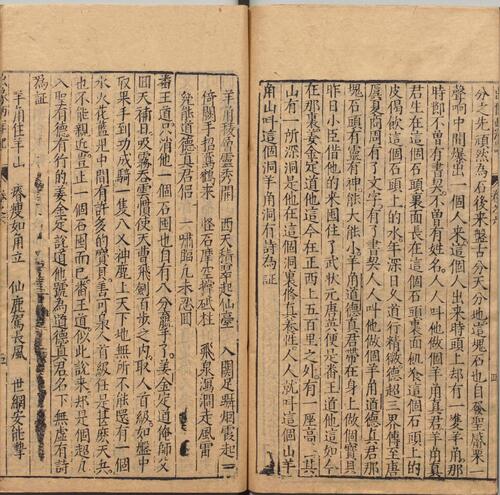 分之先頑然為石後來盤古分天分地這塊石也自發聖感果
聲響中間爆出一個人來這個人出來時頭上却有一雙羊角那
時節不曾有書契不曾有姓名人人叫他做個羊角真君羊角真
君生在這個石頭上長在這個石頭裏面飢飡這個石頭上的
皮渴飲這個石頭上的水年深日久道行精微德超三界傳至唐
虞夏商周有了文字有了書契人人叫他做個羊角道德真君那
塊石頭有靈有神能大能小羊角道德真君帶在身上做個寶貝
昨日小臣借他的來圈住了武狀元唐英便是番王道他這如今
在那裏姜金定道他這今在正西上五百里之外有一座高山其
山有一所深洞是他在這個洞裏修真養性人人就叫這個山羊
角山叫這個洞羊角洞有詩為証
羊角稜曾雲外開 西天積翠起仙臺 入關足躡烟霞起
倚闌手招鸞鶴來 怪石摩空擎砥柱 飛泉瀉澗走風雷
堯能道德真君侶 一嘯韶凡未忍回
番王道只消他一個石圈也自有八分贏手了姜金定道俺師父
回天補日吸霧吞雲慣使天曹飛劍百步之内取人首級如盤中
取果手到功成騎一隻八叉神鹿上天下地無所不能還有一個
水火花籃兒中間有許多的寶貝善門裏人首級任是甚麽天兵
也不能親近豈止一個石圈而已番王道似此說來却是個超凡
入聖有德有行的姜金定說道他號為道德真君名下無虛有詩
為証
羊角住羊山 發度如角立 仙鹿駕長風 世網安能摯